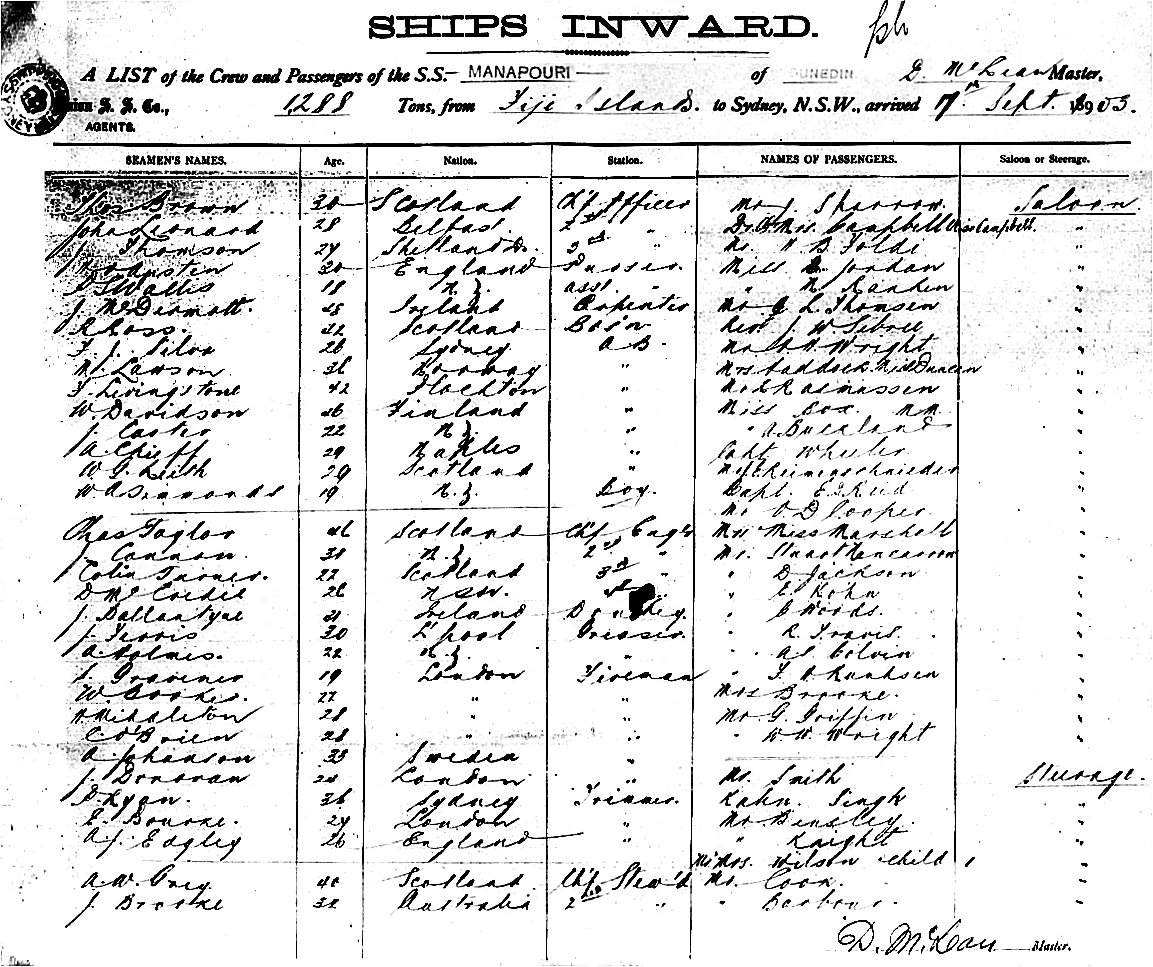 SHIPS INWARD.
A LIST of the Crew and Passengers of the S.S. MANAPOURI of DUNEDIN D. McLean Master,
Union S. S. Co., 1288 Tons, from Fiji Islands. to Sydney, N.S.W., arrived 17th Sept. 1903.
AGENTS.
SEAMEN'S NAMES. Age. Nation. Station. NAMES OF PASSENGERS. Saloon or Steerage.
Thos Brown 30 Scotland Chf Officer Mr J Sparrow. Saloon.
John Leonard 28 Belfast. 2nd " Dr & Mrs Campbell Miss Campbell. "
J. Thomson 24 Shetland Is. 3rd " Mr. "
30 England Purser. Miss Jordan "
Wallis 18 N.Z. asst. " " Ranken "
J. McDermott. 48 Ireland Carpenter Mr J L Thomsen "
R Ross. 32 Scotland Bos'n Rev J W "
F. J. Silva 26 Sydney A B. Mr Wright "
M. Lawson 36 Norway " Mrs Caddock Miss Duncan "
F. Livingstone 42 Stockton " Rasmussen "
W. Davidson 46 Finland " Miss Cox. "
J. Carter 22 N.Z. " " A. Buckland "
A. Chieff 29 Naples " Capt Wheeler "
W. G. Leith 29 Scotland " "
W A Simmonds 19 N.Z. Boy. Capt. E. Reid "
Mr O D Cooper. "
Chas Taylor 46 Scotland Chf Eng'r Mrs Miss Marshall "
J. Cannon. 30 N.Z. 2nd " Mr. Stuart "
Colin Turner. 22 Scotland 3rd " " D Jackson "
D McCordie 26 NSW. 4th " E Kohn "
J. Ballantyne 21 Ireland Donkey. " Woods. "
J. Ferris 30 L'pool Greaser. " R. Travis. "
A. Holmes. 22 N.Z. " " Colvin "
S. Grosvenor 19 London Fireman " "
W. Cookes. 22 " " Mrs Brooke. "
Middleton 28 " " Mr G. Griffin "
C O'Brien 28 " " " W W Wright "
A. Johanson 33 Sweden "
J. Donovan 24 London " Mr. Smith Steerage.
D. Ryan. 36 Sydney Trimmer. Kahn Singh "
E. Bourke. 24 London " Mr Bensley. "
A. J. Eagley 26 England " " Knight "
Mr Mrs. Wilson child 1 "
A. W. Grey 40 Scotland. Chf Stew'd Mr. Coon. "
J. Brooke 32 Australia 2nd " " Barbour. "
D. McLean Master.